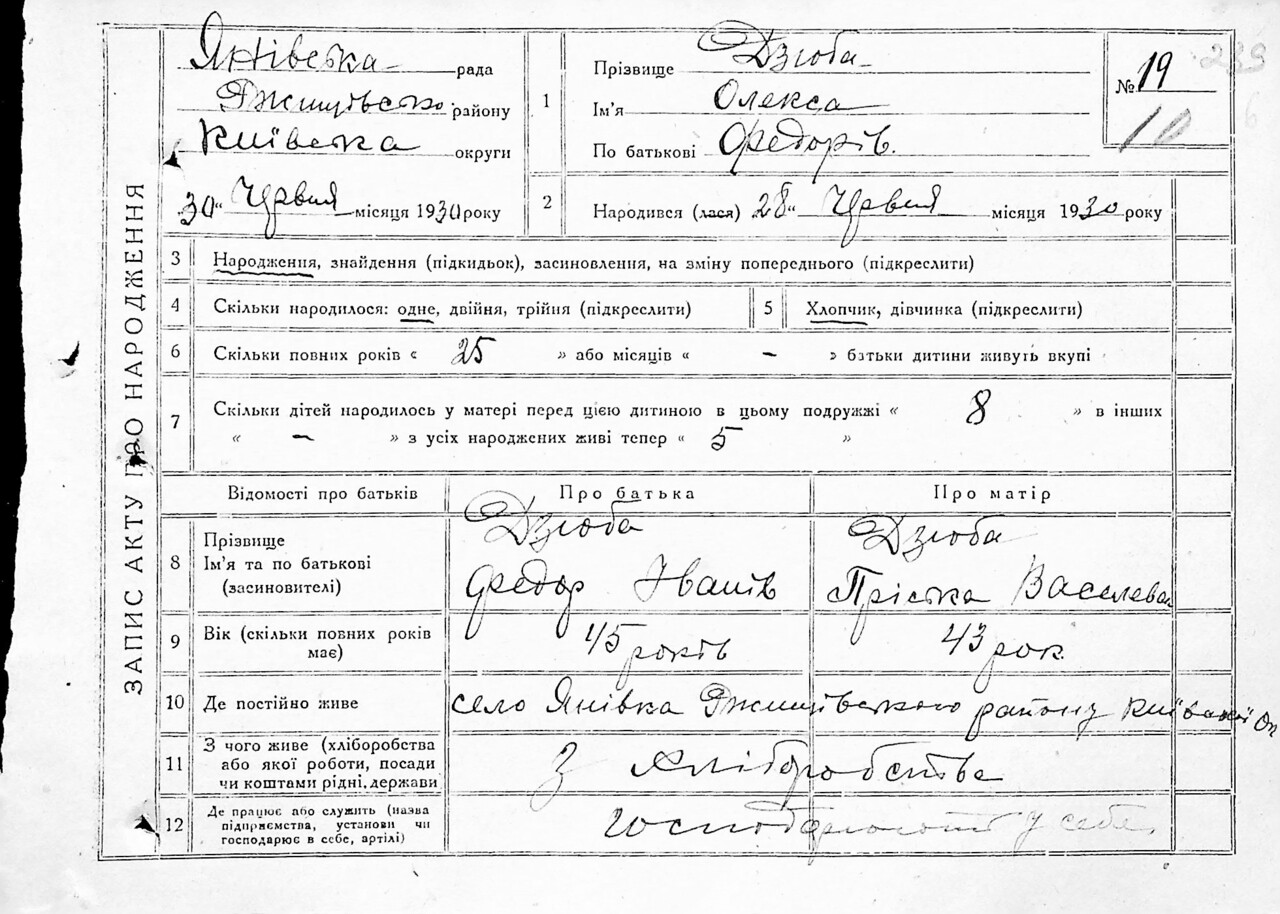 ЗАПИС АКТУ ПРО НАРОДЖЕННЯ
Янівська рада
Ржищівського району
Київська округи
30 " Червня місяця 1930 року
1
Прізвище Дзюба
Ім'я Олекса
По батькові Федорів.
№ 19
10
239
2 Народився (лася) 28 " Червня місяця 1930 року
3 Народження, знайдення (підкидьок), засиновлення, на зміну попереднього (підкреслити)
4 Скільки народилося: одне, двійня, трійня (підкреслити) 5 Хлопчик, дівчинка (підкреслити)
6 Скільки повних років « 25 » або місяців « – » батьки дитини живуть вкупі
7 Скільки дітей народилось у матері перед цією дитиною в цьому подружжі « 8 » в інших
« – » з усіх народжених живі тепер « 5 »
Відомості про батьків Про батька Про матір
8 Прізвище Дзюба Дзюба
Ім'я та по батькові Федор Іванів Пріська Васелева
(засиновителі)
9 Вік (скільки повних років 45 років 43 рок.
має)
10 Де постійно живе село Янівка Ржищівського району Київської Ок
11 З чого живе (хліборобства
або якої роботи, посади З хліборобства
чи коштами рідні, держави
12 Де працює або служить (назва
підприємства, установи чи у себе.
господарює в себе, артілі)